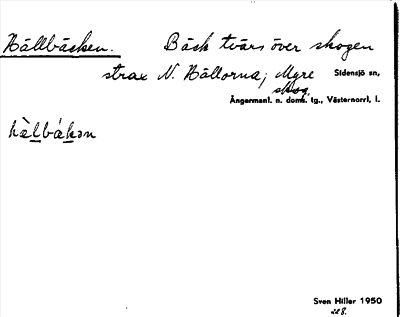 Hällbäcken. Bäck tvärs över skogen
strax N. Hällorna; Myre Sidensjö sn,
skog.
Ångermanl. n. doms. tg., Västernorrl. l.
hàlbákən
Sven Hiller 1950